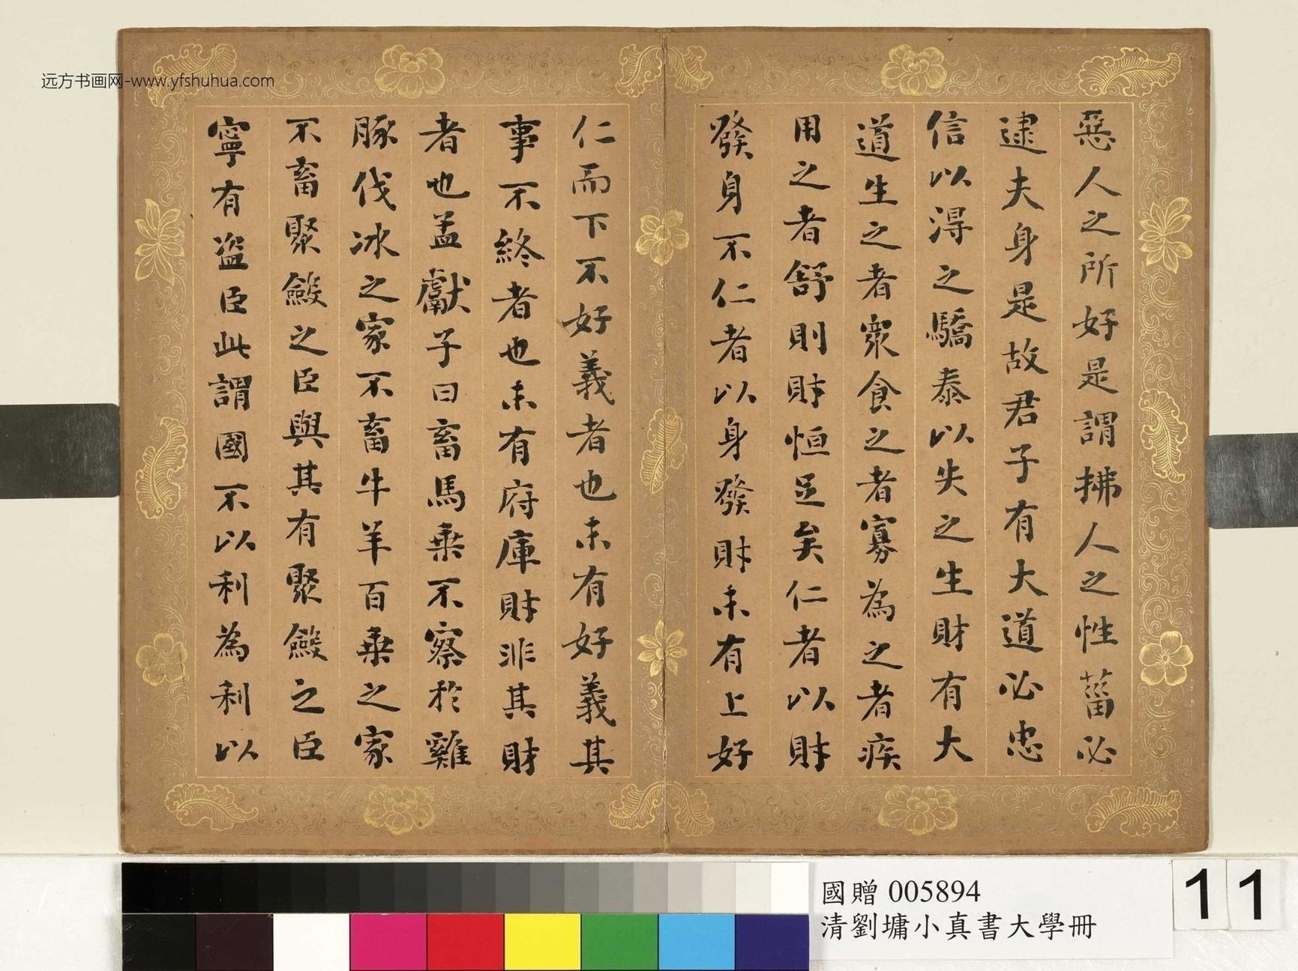 远方书画网-www.yfshuhua.com
惡人之所好是謂拂人之性菑必
逮夫身是故君子有大道必忠
信以得之驕泰以失之生財有大
道生之者眾食之者寡為之者疾
用之者舒則財恒足矣仁者以財
發身不仁者以身發財未有上好
仁而下不好義者也未有好義其
事不終者也未有府庫財非其財
者也孟獻子曰畜馬乘不察於雞
豚伐冰之家不畜牛羊百乘之家
不畜聚斂之臣與其有聚斂之臣
寧有盜臣此謂國不以利為利以
國贈 005894
清劉墉小真書大學冊
11